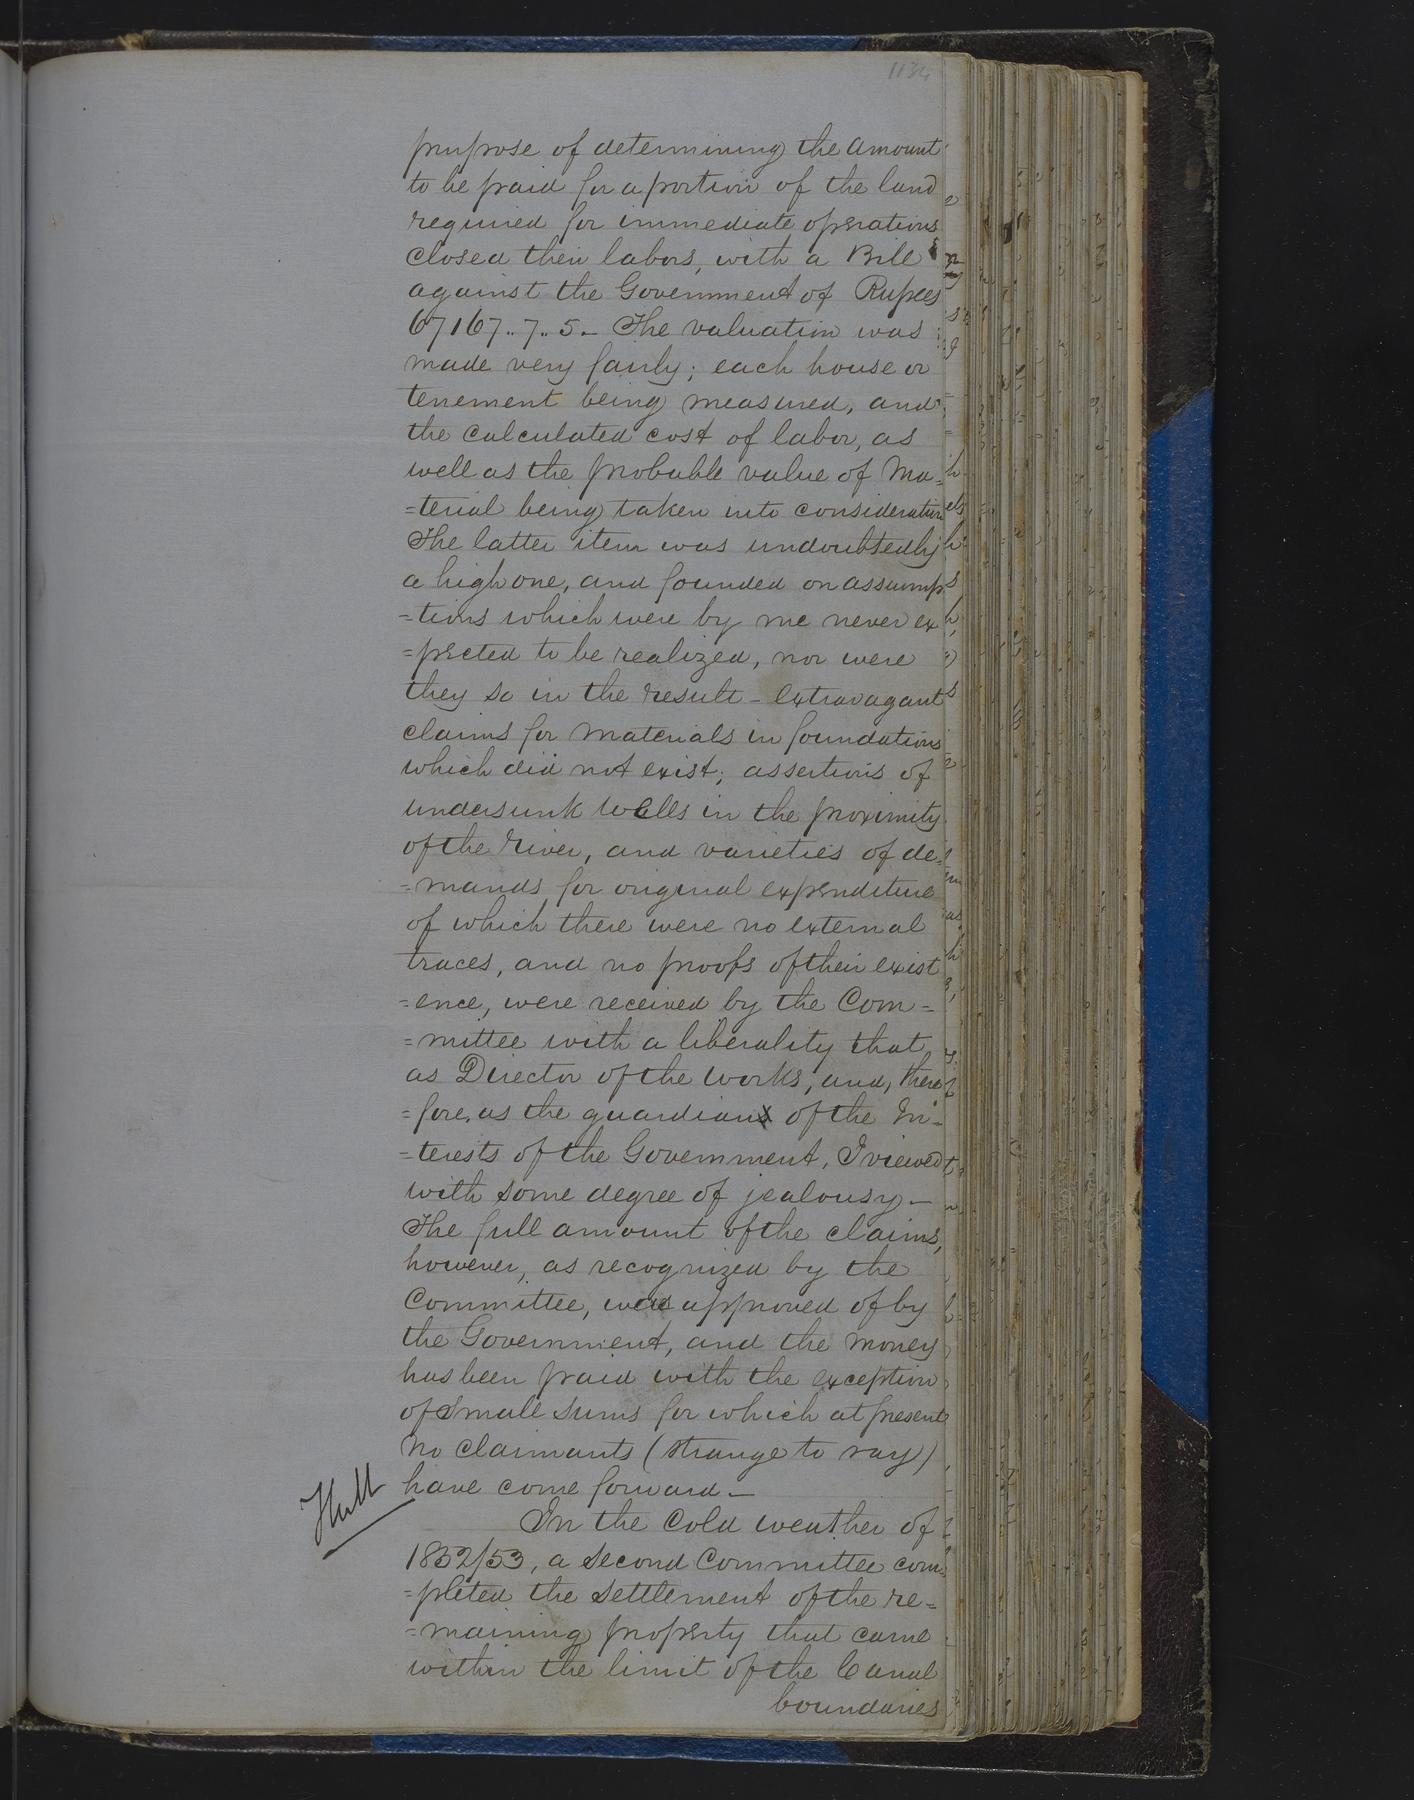 1134
purpose of determining the amount
to be paid for a portion of the land
required for immediate operations
closed their labors, with a Bill
against the Government of Rupees
67167..7..5._ The valuation was
made very fairly; each house or
tenement being measured, and
the calculated cost of labor, as
well as the probable value of Ma-
=terial being taken into consideration
The latter item was undoubtedly
a high one, and founded on assump
=tions which were by me never ex
=pected to be realized, nor were
they so in the result - extravagant
claims for materials in foundations
which did not exist; assertions of
undersunk wells in the proximity
of the River, and varieties of de=
=mands for original expenditure
of which there were no external
traces, and no proofs of their exist
=ence, were received by the Com=
=mittee with a liberality that
as Director of the works, and, there
=fore, as the guardian of the In=
=terests of the Government, I viewed
with some degree of jealousy_
The full amount of the claims,
however, as recognized by the
Committee, was approved of by
the Government, and the money
has been paid with the exception
of small sums for which at present
no claimants (strange to say)
have come forward_
In the cold weather of
1852/53, a second Committee com=
=pleted the settlement of the re=
=maining property that came
within the limit of the Canal
boundaries